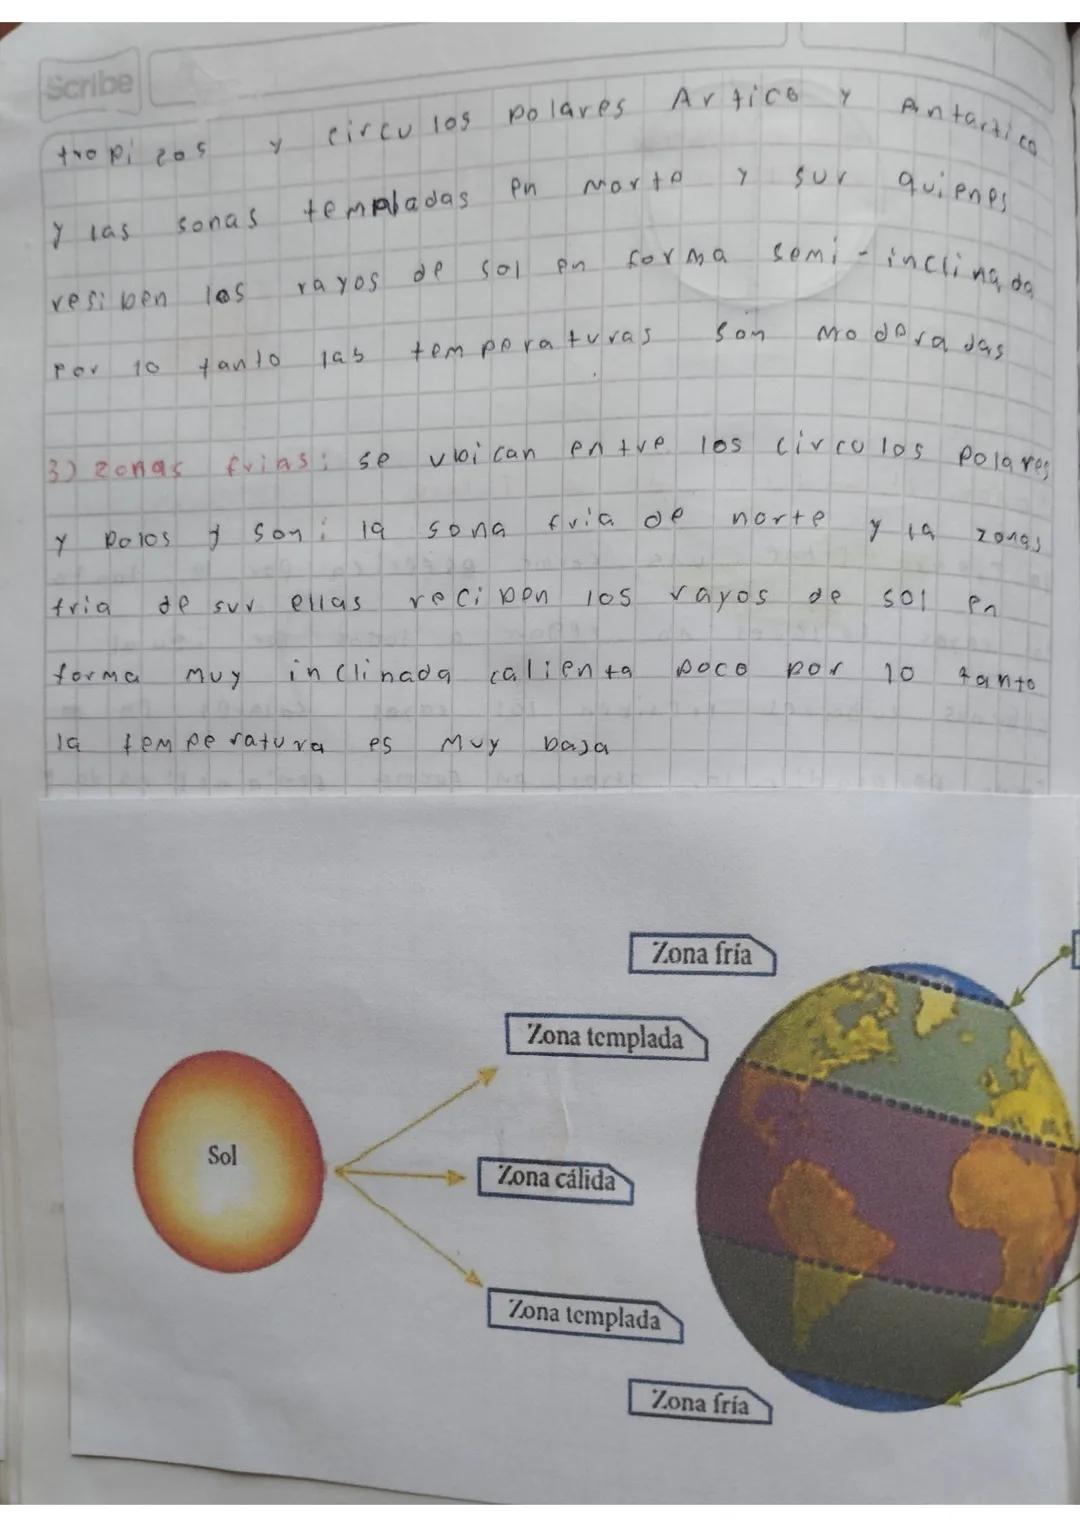 Scribe
tropizos y circulos polares Artico y Antartico
y las sonas templadas en norte y sur quienes
resiben los rayos de sol en forma semi-inclinada
por lo tanto las temperaturas son moderadas
3) zonas frias: se ubican entre los circulos polares
y polos y son: la sona fria de norte y la zonas
fria de sur ellas reciben los rayos de sol en
forma muy inclinada calienta poco por lo tanto
la temperatura es muy baja
Zona fría
Zona templada
Sol
Zona cálida
Zona templada
Zona fría